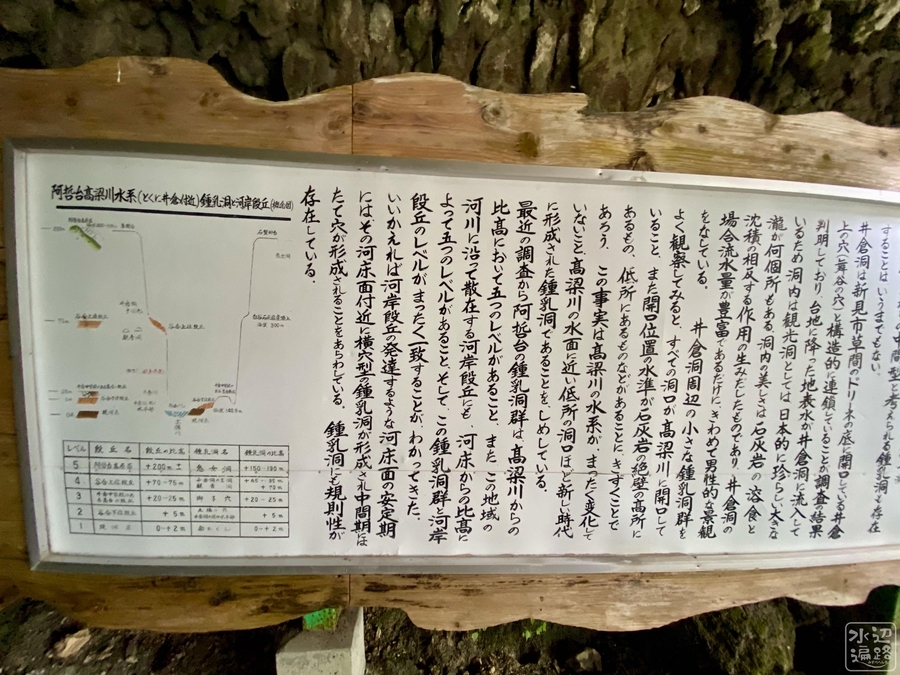 の中間型と考えられる鍾乳洞も存在
することはいうまでもない。
井倉洞は新見市草間のドリーネの底に開口している井倉
上の穴(舞谷の穴)と構造的に連鎖していることが調査の結果
判明しており、台地に降った地表水が井倉洞に流入して
いるため洞内は観光洞としては日本的に珍らしい大きな
瀧が何個所もある。洞内の美しさは石灰岩の溶食と
沈積の相反する作用の生みだしたものであり、井倉洞の
場合流水量が豊富であるだけに、きわめて男性的な景観
をなしている。 井倉洞周辺の小さな鍾乳洞群を
よく観察してみると、すべての洞口が高梁川に開口して
いること、また開口位置の水準が石灰岩の絶壁の高所に
あるもの、低所にあるものなどがあることに、きずくことで
あろう。 この事実は高梁川の水系が、まったく変化して
いないこと、高梁川の水面に近い低所の洞口ほど新しい時代
に形成された鍾乳洞であることを、しめしている。
最近の調査から阿哲台の鍾乳洞群は、高梁川からの
比高において五つのレベルがあること、また、この地域の
河川に沿って散在する河岸段丘にも、河床からの比高に
よって五つのレベルがあること、そして、この鍾乳洞群と河岸
段丘のレベルがまったく一致することが、わかってきた。
いいかえれば河岸段丘の発達するような河床面の安定期
にはその河床面付近に横穴型の鍾乳洞が形成され中間期には
たて穴が形成されることをあらわしている。鍾乳洞にも規則性が
存在している。
阿哲台高梁川水系(とくに井倉付近)鍾乳洞と河岸段丘(概念図)
レベル 段丘名 段丘の比高 鍾乳洞名 鍾乳洞の比高
5 阿哲台高原面 +200m± +150-190m
4 谷合上位段丘 +70-75m
3 +20-25m +20-25m
2 谷合下位段丘 +5m +5m
1 現河床 0-+2m 0-+2m
水辺遍路